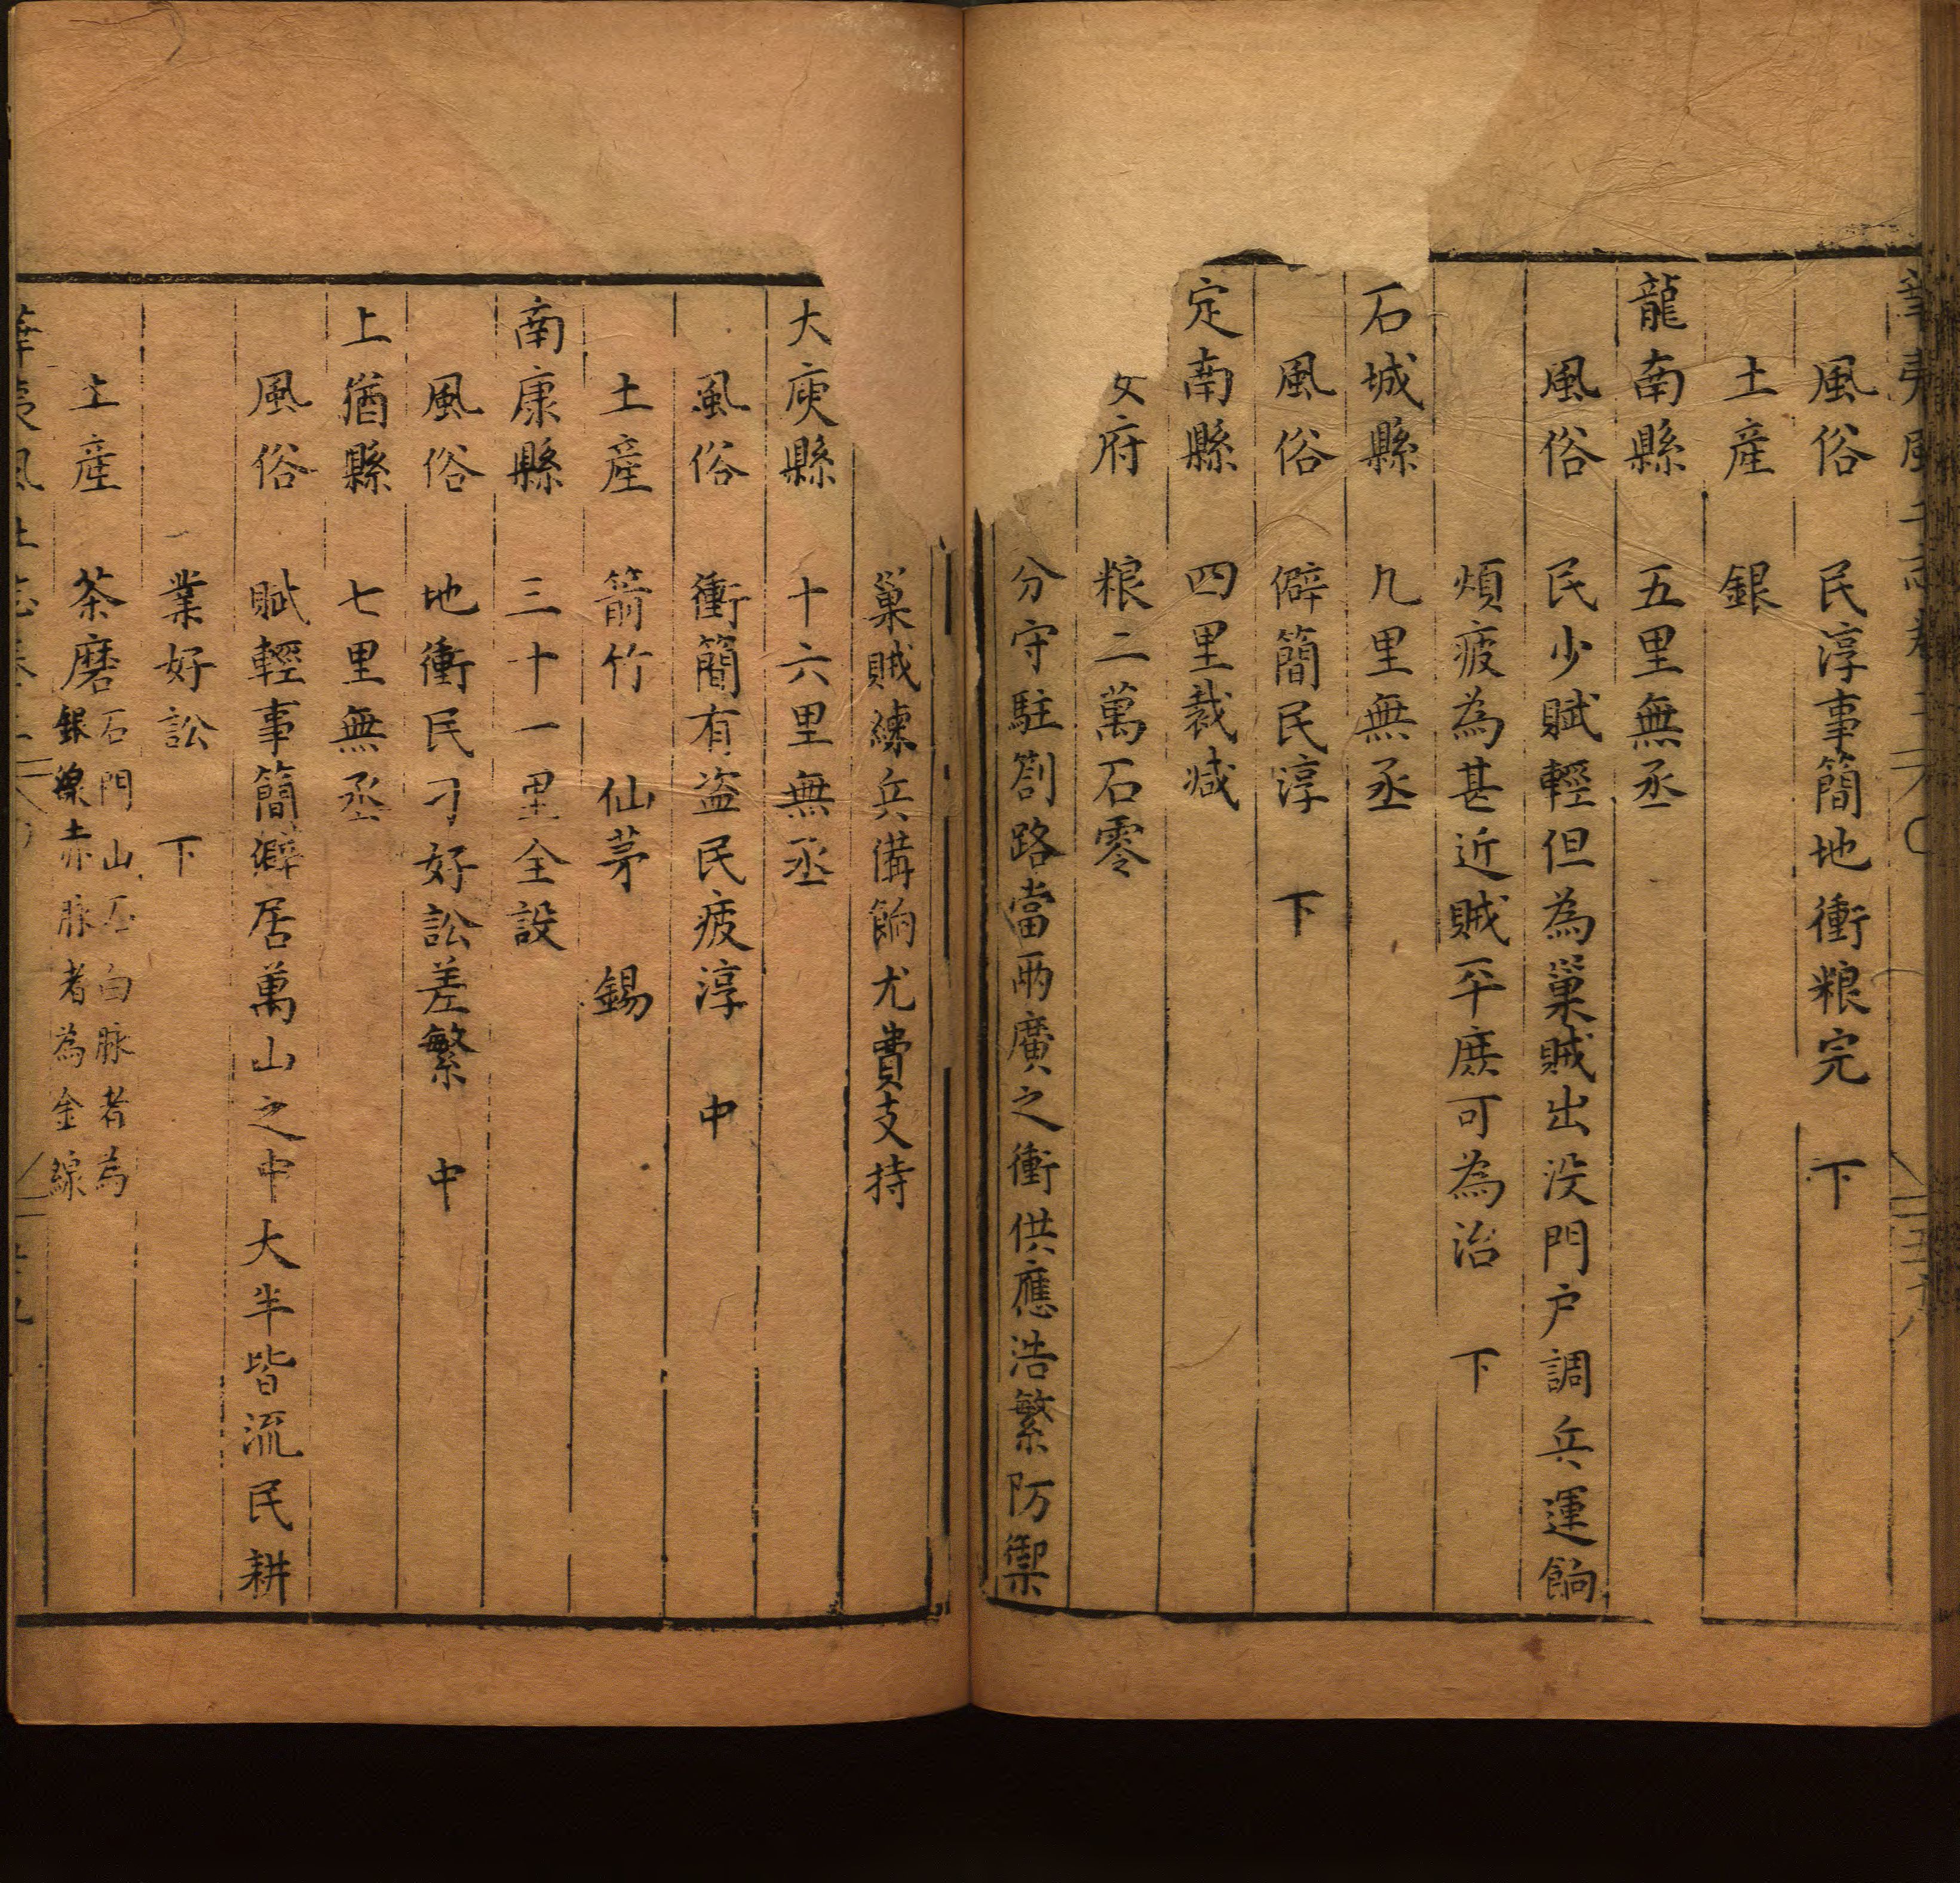 風俗 民淳事簡地衝粮完 下
土産 銀
龍南縣 五里無丞
風俗 民少賦輕但為巢賊出没門户調兵運餉
煩疲為甚近賊平庶可為治 下
石城縣 几里無丞
風俗 僻簡民淳 下
定南縣 四里裁減
府 粮二萬石零
分守駐劄路當兩廣之衝供應浩繁防禦
巢賊練兵備餉尤費支持
大庾縣 十六里無丞
風俗 衝簡有盗民疲淳 中
土産 箭竹 仙茅 錫
南康縣 三十一里全設
風俗 地衝民刁好訟差繁 中
上猶縣 七里無丞
風俗 賦輕事簡僻居萬山之中大半皆流民耕
業好訟 下
土産 茶磨 石門山石白脉者為
銀線赤脉者為金線